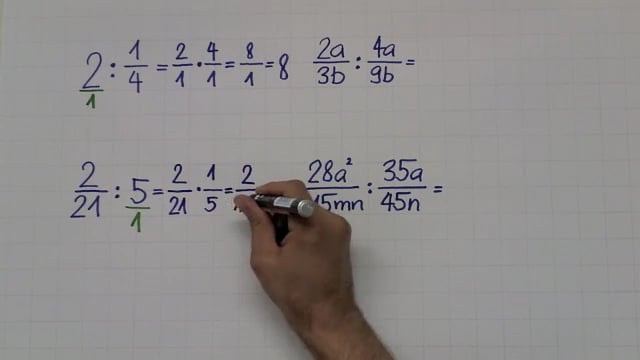 2/1 : 1/4 = 2/1 · 4/1 = 8/1 = 8   2a/3b : 4a/9b =
2/21 : 5/1 = 2/21 · 1/5 = 2/   28a²/15mn : 35a/45n =